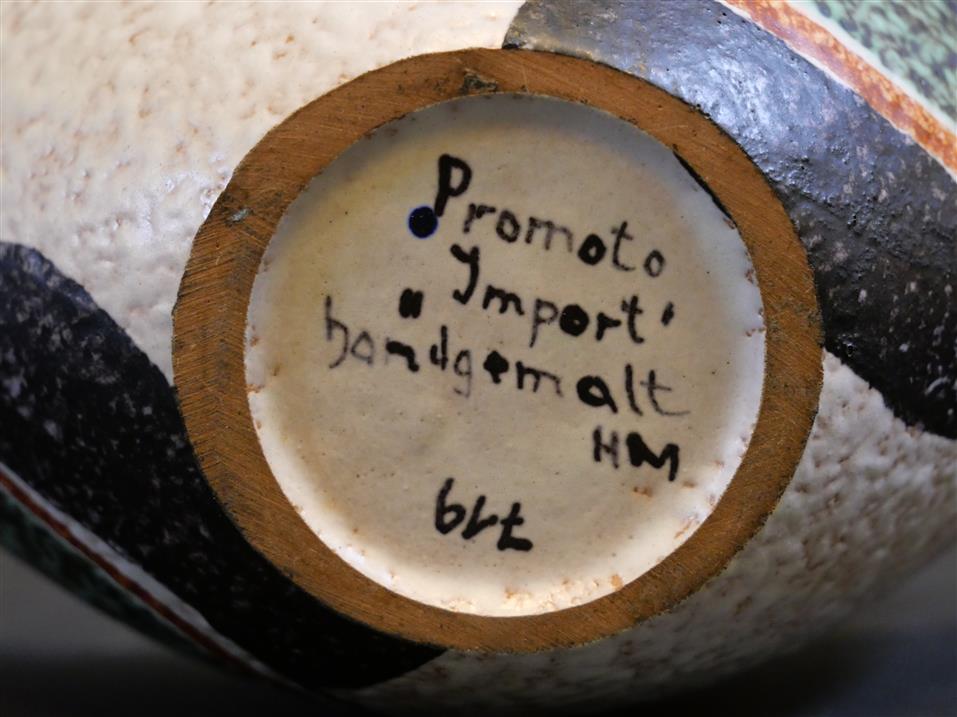 Promoto
"Ymport'
handgemalt
HM